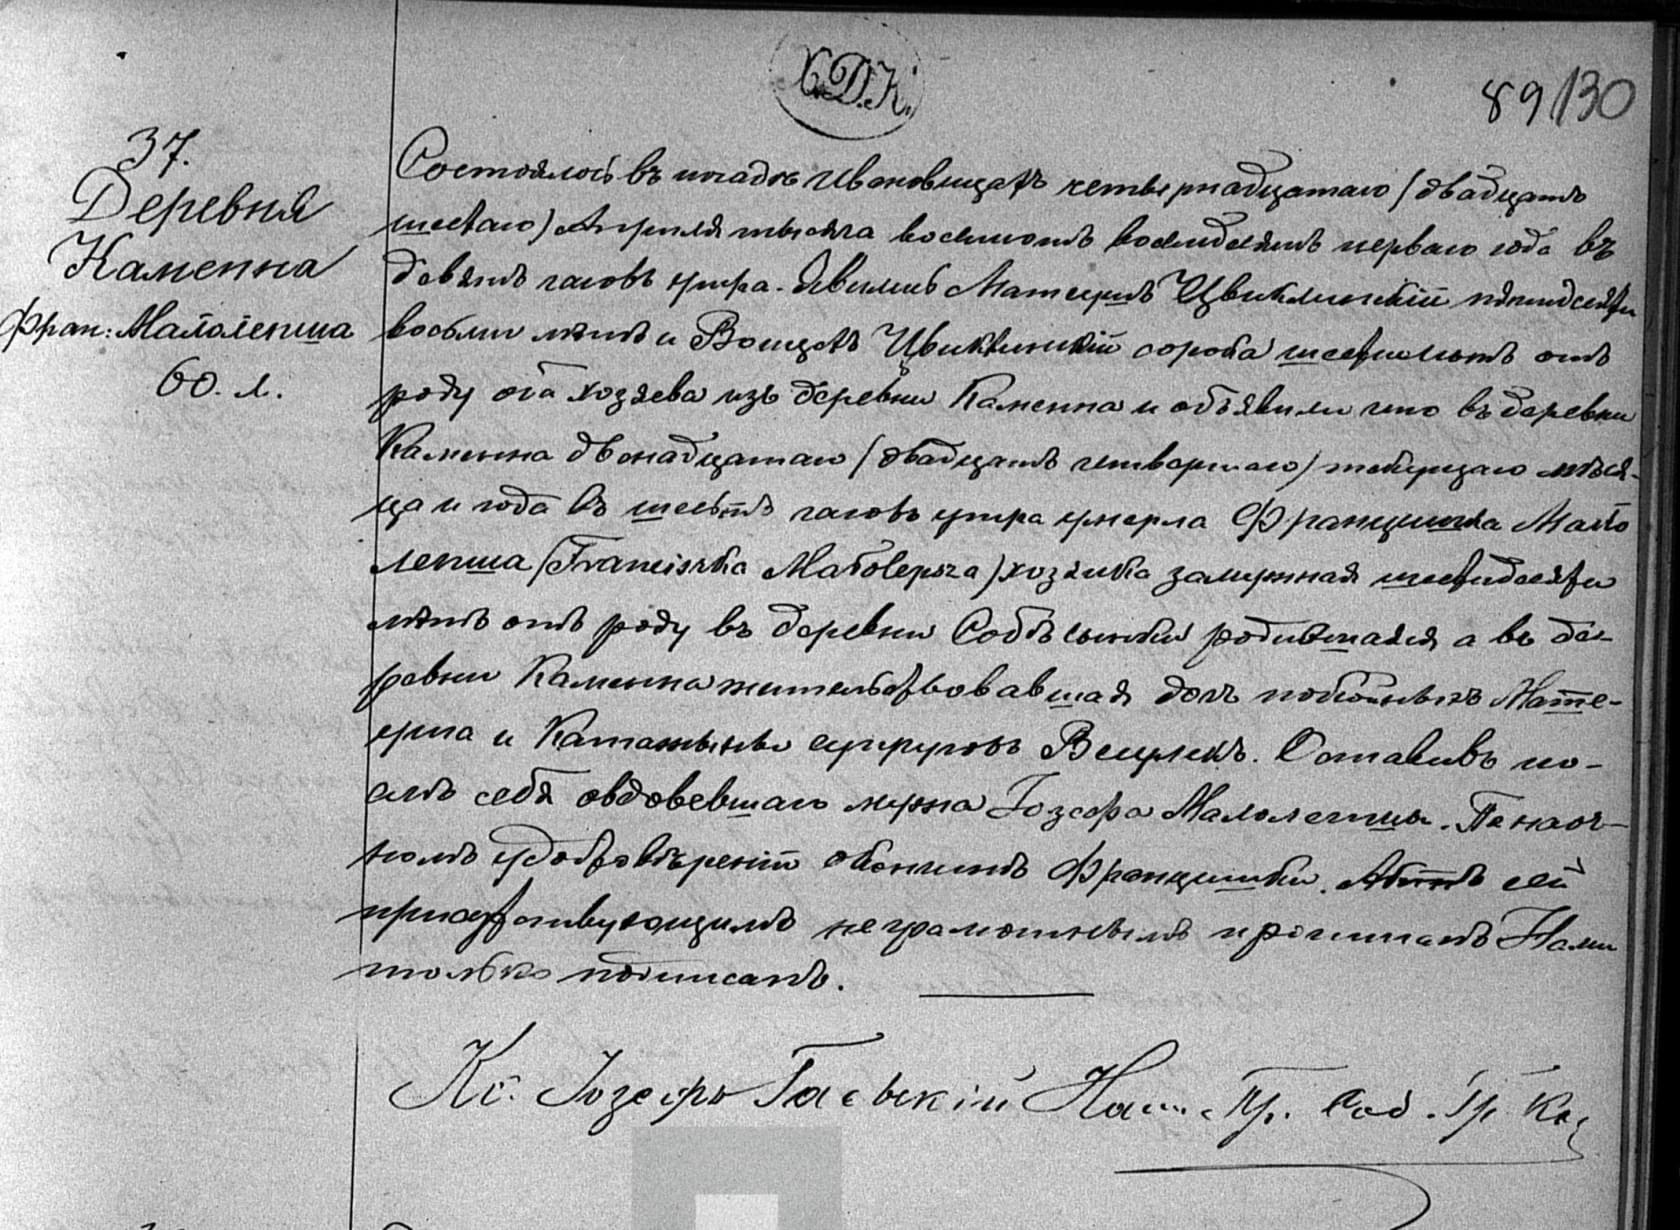 Х.Д.К.
89 130
37.
Деревня
Каменна
Фран: Малолепша
60. л.
Состоялось въ посадѣ Ивановицахъ четырнадцатаго (двадцать
шестаго) Апреля тысяча восемьсотъ восемдесятъ перваго года въ
девять часовъ утра. Явились Матеушъ Цвиклинскій пятидесяти
восьми лѣтъ и Войцехъ Цвиклинскій сорока шести лѣтъ отъ
роду оба хозяева изъ деревни Каменна и объявили что въ деревни
Каменна двенадцатаго (двадцать четвертаго) текущаго мѣся-
ца и года въ шесть часовъ утра умерла Францишка Мало
лепша (Franciszka Małolepsza) хозяйка замужная шестидесяти
лѣтъ отъ роду въ деревни родившаяся а въ де-
ревни Каменна жительствовавшая дочь покойныхъ Мате-
уша и Катажины супруговъ. Оставивъ по-
слѣ себя овдовевшаго мужа Іозефа Малолепшы. По наоч-
номъ удостовѣреніи о кончинѣ Францишки. Актъ сей
присутствующимъ неграмотнымъ прочитанъ Нами
только подписанъ.
Кс. Іозефъ Наст. Пр. Сод. Гр.